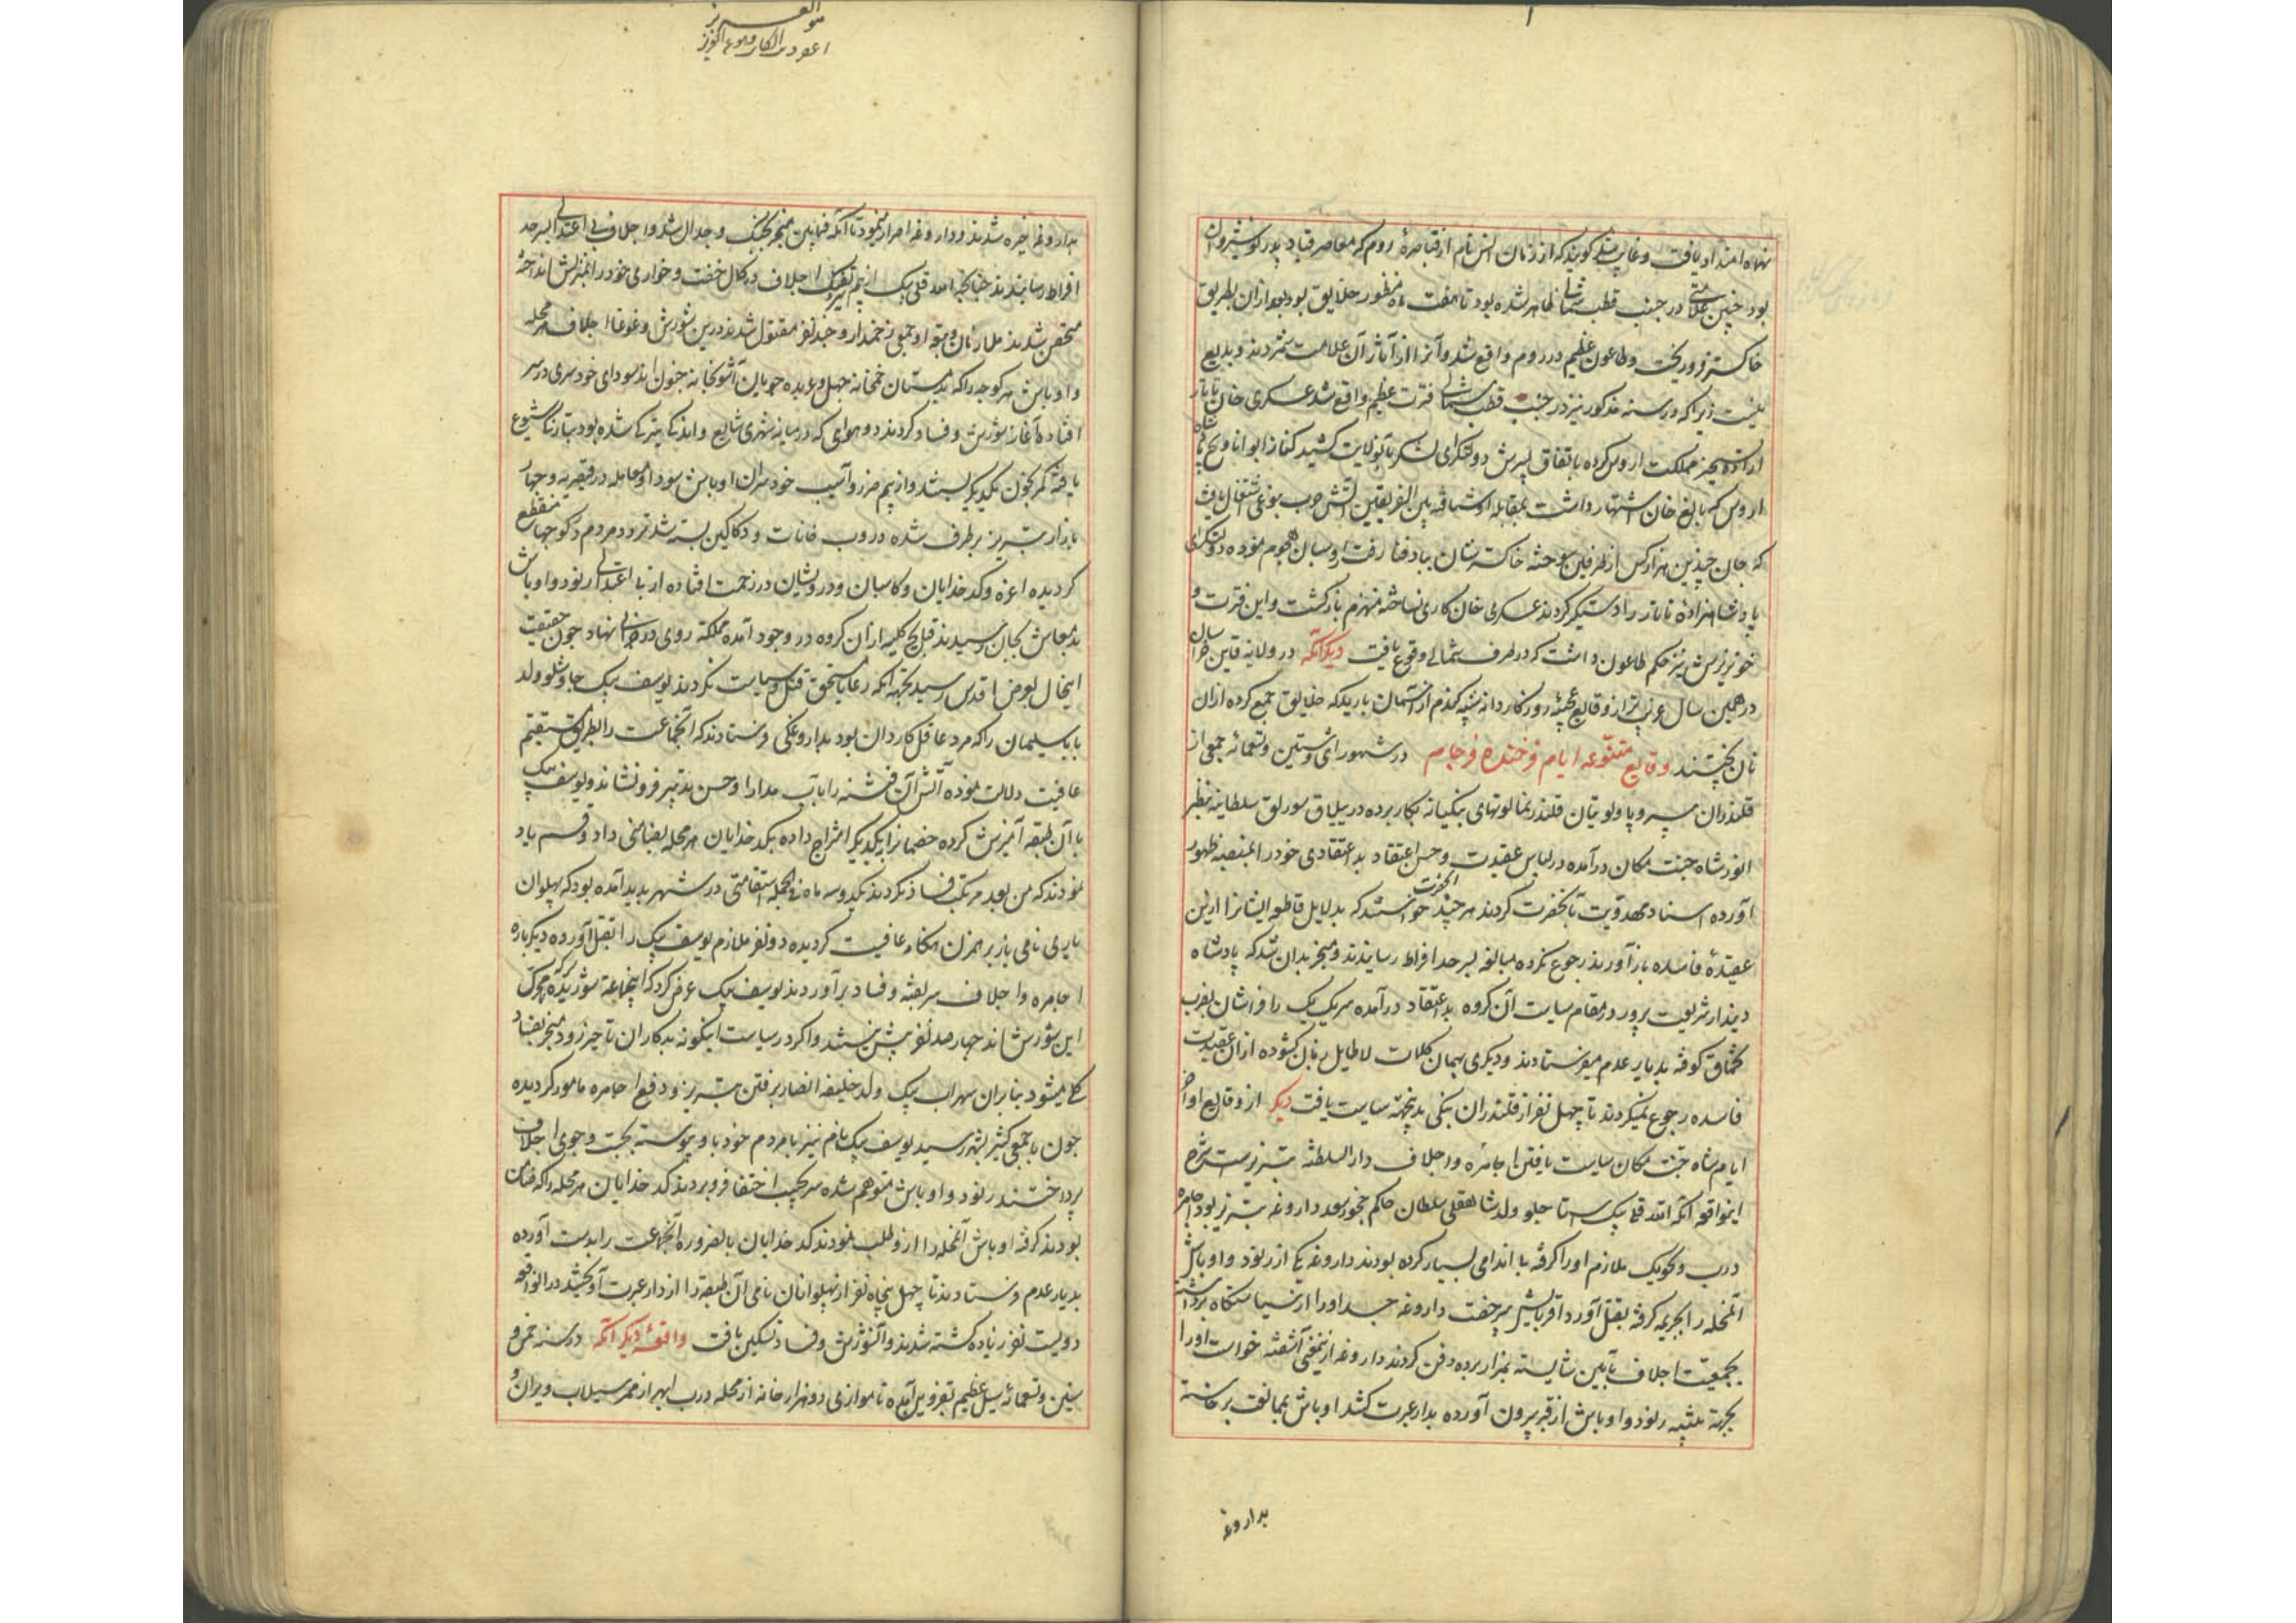 بود چنین علامتی در جنب قطب شمالی ظاهر شده بود تا هفت ماه منظور خلایق بود بعد از آن بطریق
خاکستر فرو ریخت و طاعون عظیم در روم واقع شد و آنرا از آثار آن علامت شمردند و بدیع
نیست زیرا که در سنه مذکور نیز در جنب قطب شمالی فترت عظیم واقع شد عسکری خان تاتار
اراده تسخیر مملکت اروس کرده باتفاق پسرش دولتکرای لشکر بآنولایت کشید
اروس که بالغ خان اشتهار داشت بمقابله او شتافته بین الفریقین آتش حرب بنوعی اشتعال یافت
که جان چندین هزار کس از طرفین سوخته خاکسترشان بباد فنا رفت اروسیان هجوم نموده دولتکرای
پادشاهزاده تاتار را دستگیر کردند عسکری خان کاری نساخته منهزم بازگشت و این فترت و
خونریزش نیز حکم طاعون داشت که در طرف شمالی وقوع یافت دیگر آنکه در ولایه قاین خراسان
در همین سال غریب تر از وقایع عجیبه روزکار دانه شبیه بگندم از آسمان بارید که خلایق جمع کرده از آن
نان پختند وقایع متنوعه ایام فرخنده فرجام در شهور احدی و ستین و تسعمائه جمعی از
قلندران بی سر و پا و لوتیان قلندرنما لوتهای بنکیانه بکار برده در ییلاق سورلق سلطانیه بنظر
انور شاه جنت مکان درآمده در لباس عقیدت و حسن اعتقاد بد اعتقادی خود را بمنصه ظهور
آورده اسناد مهدویت بآنحضرت کردند هر چند آنحضرت خواستند که بدلایل قاطعه ایشانرا از این
عقیدهٔ فاسده باز آورند رجوع نکرده مبالغه بسرحد افراط رسانیدند و منجر بدان شد که پادشاه
دیندار شریعت پرور در مقام سیاست آن گروه بد اعتقاد درآمده سر یک یک را فراشان بضرب
تخماق کوفته بدیار عدم میفرستادند و دیگری بهمان کلمات لاطایل زبان گشوده از آن عقیدت
فاسده رجوع نمیکردند تا چهل نفر از قلندران بنکی بدینجهته سیاست یافت دیگر از وقایع اواخر
ایام شاه جنت مکان سیاست یافتن اجامره و اجلاف دار السلطنه تبریزست شرح
اینواقعه آنکه الله قلی بیک استاجلو ولد شاهقلی سلطان حاکم چخورسعد داروغه تبریز بود اجامره
درب ویجویک ملازم او را گرفته با اندامی بسیار کرده بودند داروغه یکی از رنود و اوباش
آنمحله را بجریمه گرفته بقتل آورد
بجمعیت اجلاف بآیین شایسته بمزار برده دفن کردند داروغه از اینمعنی آشفته خواست او را
بجهة تنبیه رنود و اوباش از قبر بیرون آورده بدار عبرت کشد اوباش بممانعت برخاسته
بداروغه
بداروغه خیره شدند و داروغه اصرار نمود تا آنکه فیمابین منجر بجنگ و جدال شد و اجلاف بی اعتدالی بسرحد
افراط رسانیدند چنانچه الله قلی بیک از بیم تیر و تفنگ اجلاف در کمال خفت و خواری خود را بمنزلش انداخته
متحصن شدند ملازمان و تبعه او جمعی زخمدار و چند نفر مقتول شدند درین شورش و غوغا اجلاف هر محله
و اوباش هر کوچه را که بدمستان خمخانه جهل و عربده جویان آشوبخانه جنون اند سودای خودسری در سر
افتاده آغاز شورش و فساد کردند
یافته کمر بخون یکدیگر بستند و از بیم ضرر و آسیب خودسران اوباش سودا و معامله در قیصریه و چهار
بازار تبریز بر طرف شده دروب خانات و دکاکین بسته شد تردد مردم در کوچها منقطع
گردیده اعزه و کدخدایان و کاسبان و درویشان در زحمت افتاده از بی اعتدالی رنود و اوباش
بدمعاش بجان رسیدند قبایح کلیه از آن گروه در وجود آمده مملکة روی در خرابی نهاد چون حقیقت
اینحال بعرض اقدس رسید بجهته آنکه رعایا مستحق قتل و سیاست نگردند یوسف بیک چاوشلو ولد
بابا سلیمان را که مرد عاقل کاردان بود بداروغگی فرستادند که آنجماعت را بطریق مستقیم
عافیت دلالت نموده آتش آن فتنه را بآب مدارا و حسن تدبیر فرو نشاند و یوسف بیک
با آن طبقه آمیزش کرده خصمانرا بایکدیگر امتزاج داده بکدخدایان هر محله بضامنی داد و قسم یاد
نمودند که من بعد مرتکب فساد نگردند یکدو سه ماه فی الجمله استقامتی در شهر پدید آمده بود که پهلوان
یاری نامی باز بر هم زن هنگامه عافیت گردیده دو نفر ملازم یوسف بیک را بقتل آورده دیگر باره
اجامره و اجلاف سر بفتنه و فساد برآوردند یوسف بیک عرض کرد که اینجماعة شوریده که محرک
این شورش اند چهار صد نفر بیش نیستند و اگر در سیاست اینگونه بدکاران تأخیر رود منجر بفساد
کلی میشود بنابر آن سهراب بیک ولد خلیفه انصار برفتن تبریز و دفع اجامره مامور گردیده
چون با جمعی کثیر بشهر رسید یوسف بیک نام نیز با مردم خود باو پیوسته بجست و جوی اجلاف
پرداختند رنود و اوباش متوهم شده سر بجیب اختفا فرو بردند کدخدایان هر محله را که ضامن
بودند گرفته اوباش آنمحله را از او طلب نمودند کدخدایان بالضروره آنجماعت را بدست آورده
بدیار عدم فرستادند تا چهل پنجاه نفر از پهلوانان نامی آن طبقه را از دار عبرت آویختند در آنواقعه
دویست نفر زیاده کشته شدند و آنشورش و فساد تسکین یافت واقعهٔ دیگر آنکه در سنه خمس و
ستین و تسعمائه سیل عظیم بقزوین آمده تا موازی دو هزار خانه از محله درب ابهر از ممر سیلاب ویران و